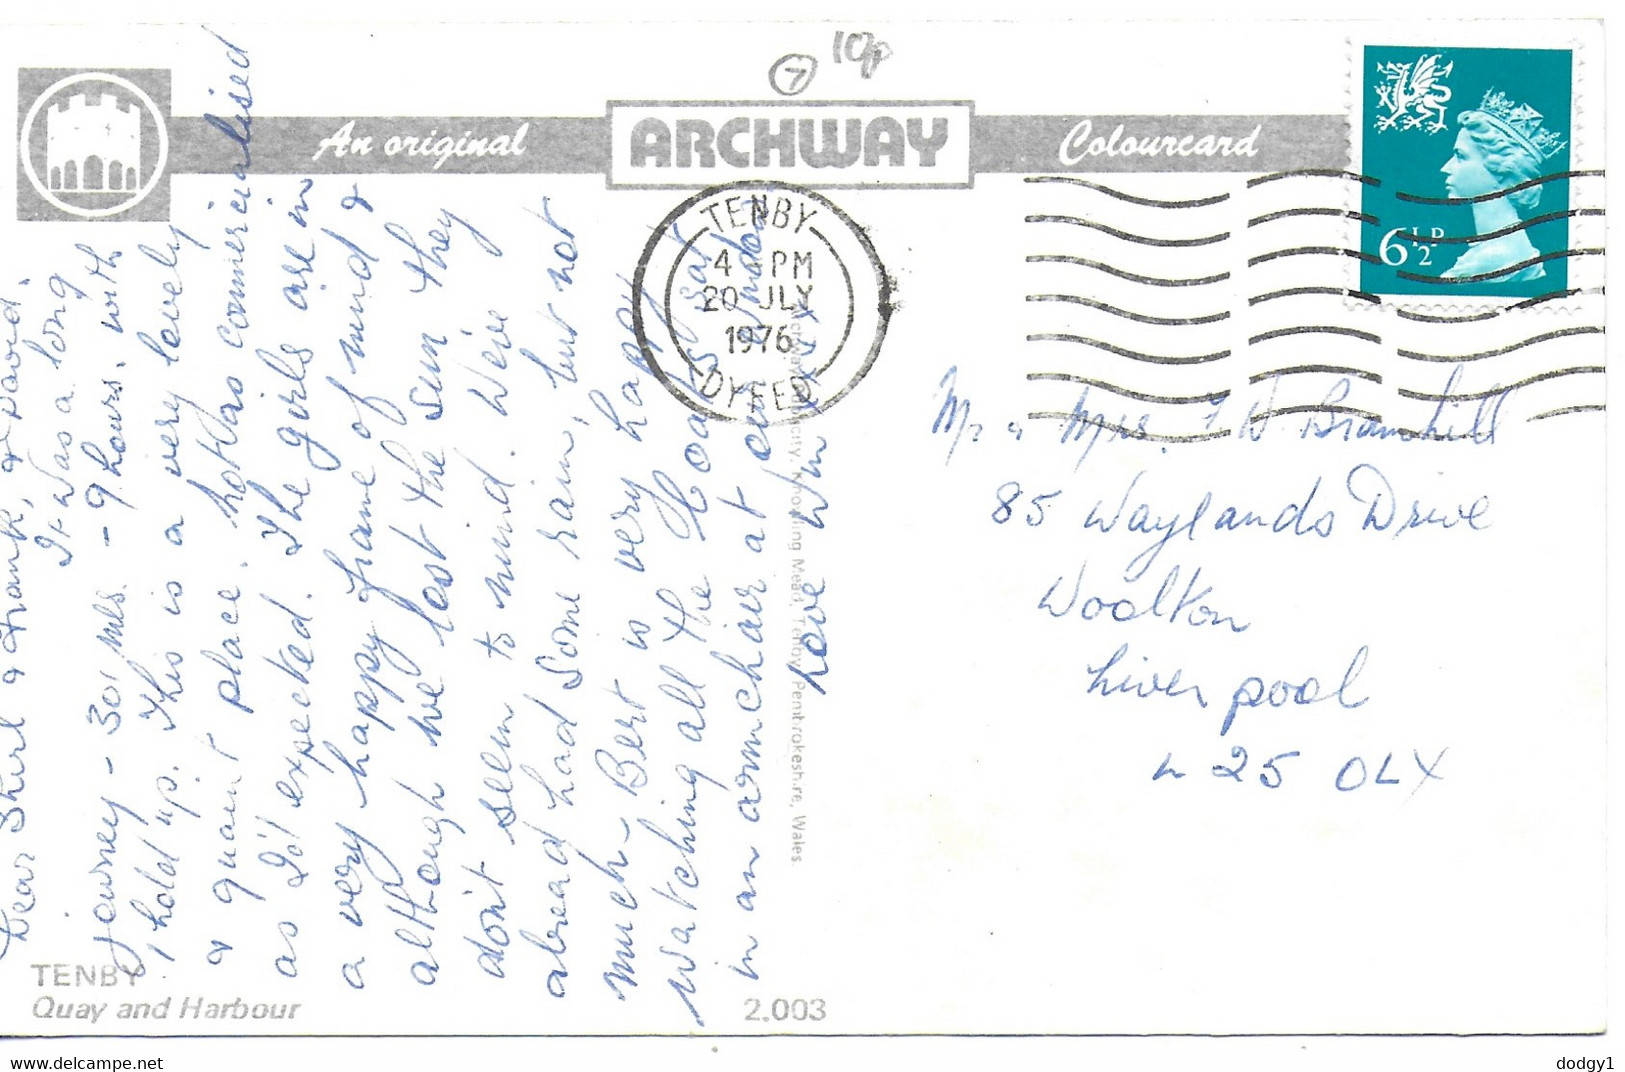 7
10p
An original
ARCHWAY
Colourcard
6½P
TENBY
4 PM
20 JLY
1976
DYFED
Dear Shirl & Frank, & David.
It was a long
journey - 301 mls. - 9 hours. with
1 hold up. This is a very lovely
& quaint place, not as commercialised
as I'd expected. The girls are in
a very happy frame of mind &
although we lost the sun they
don't seem to mind. We've
abread had some rain, but not
much - Bert is very happy
watching all the boats sat
in an armchair at our window
Love Win xxxx
Mr & Mrs. F H Bramhill
85 Waylands Drive
Woolton
Liverpool
L 25 OLX
Knowling Mead, Tenby, Pembrokeshire, Wales.
TENBY
Quay and Harbour
2.003
delcampe.net
dodgy1